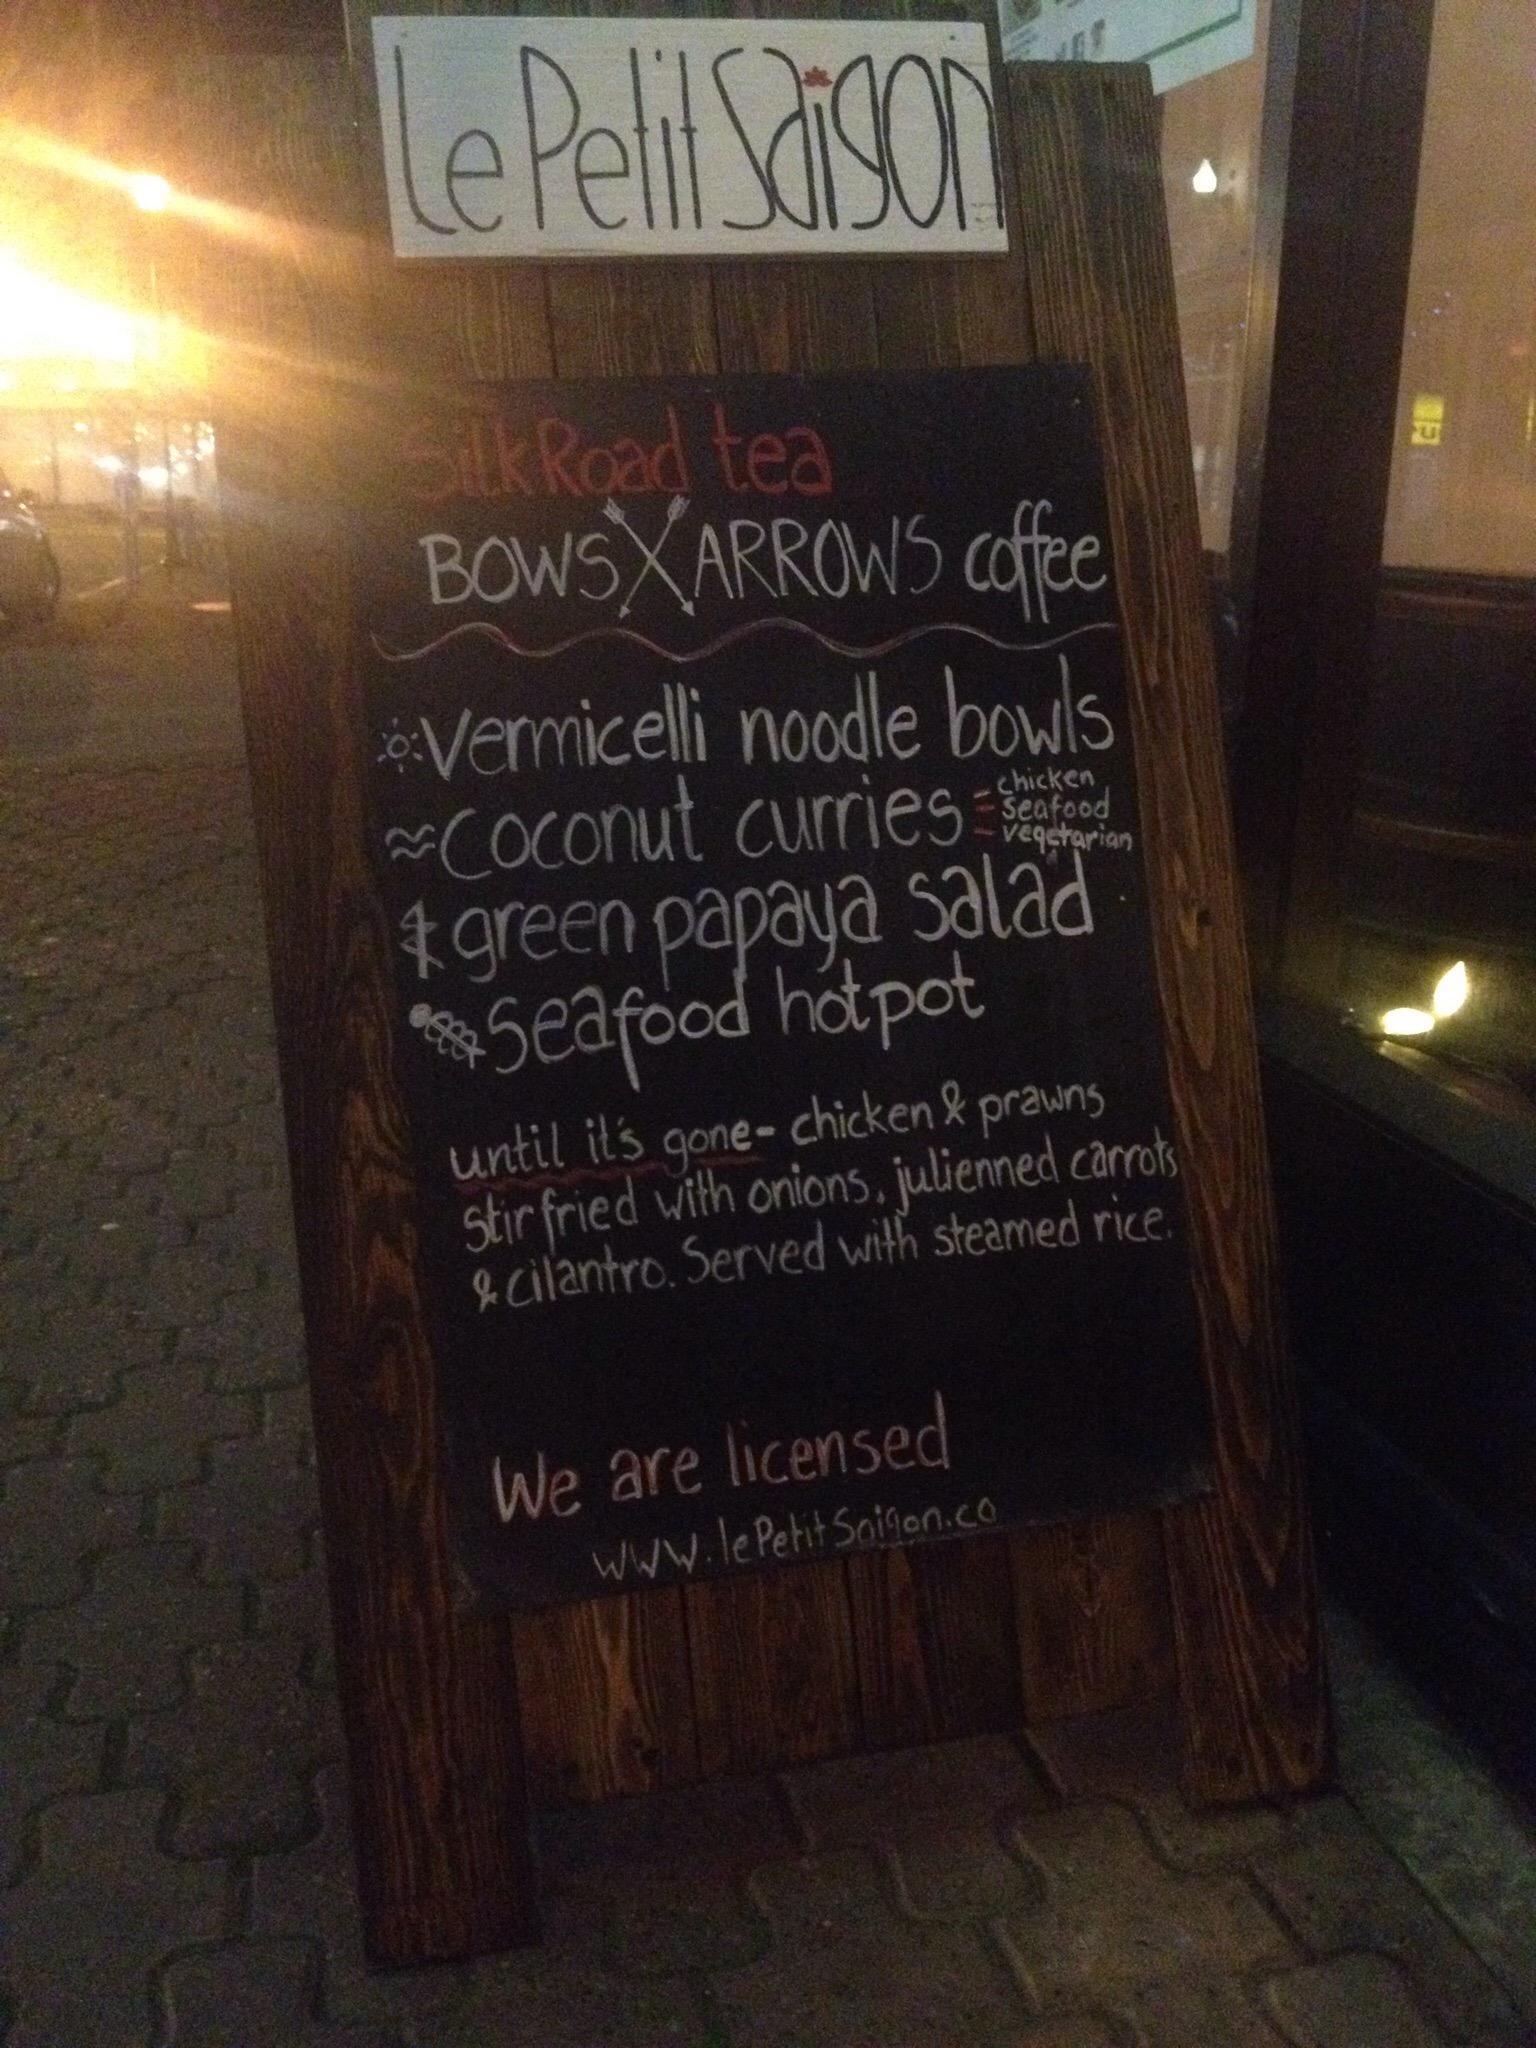 Le Petit Saigon
SilkRoad tea
BOWS X ARROWS coffee
vermicelli noodle bowls
coconut curries - chicken
- seafood
- vegetarian
green papaya salad
seafood hotpot
until it's gone - chicken & prawns
stir fried with onions, julienned carrots
& cilantro. Served with steamed rice.
We are licensed
www.lePetitSaigon.co